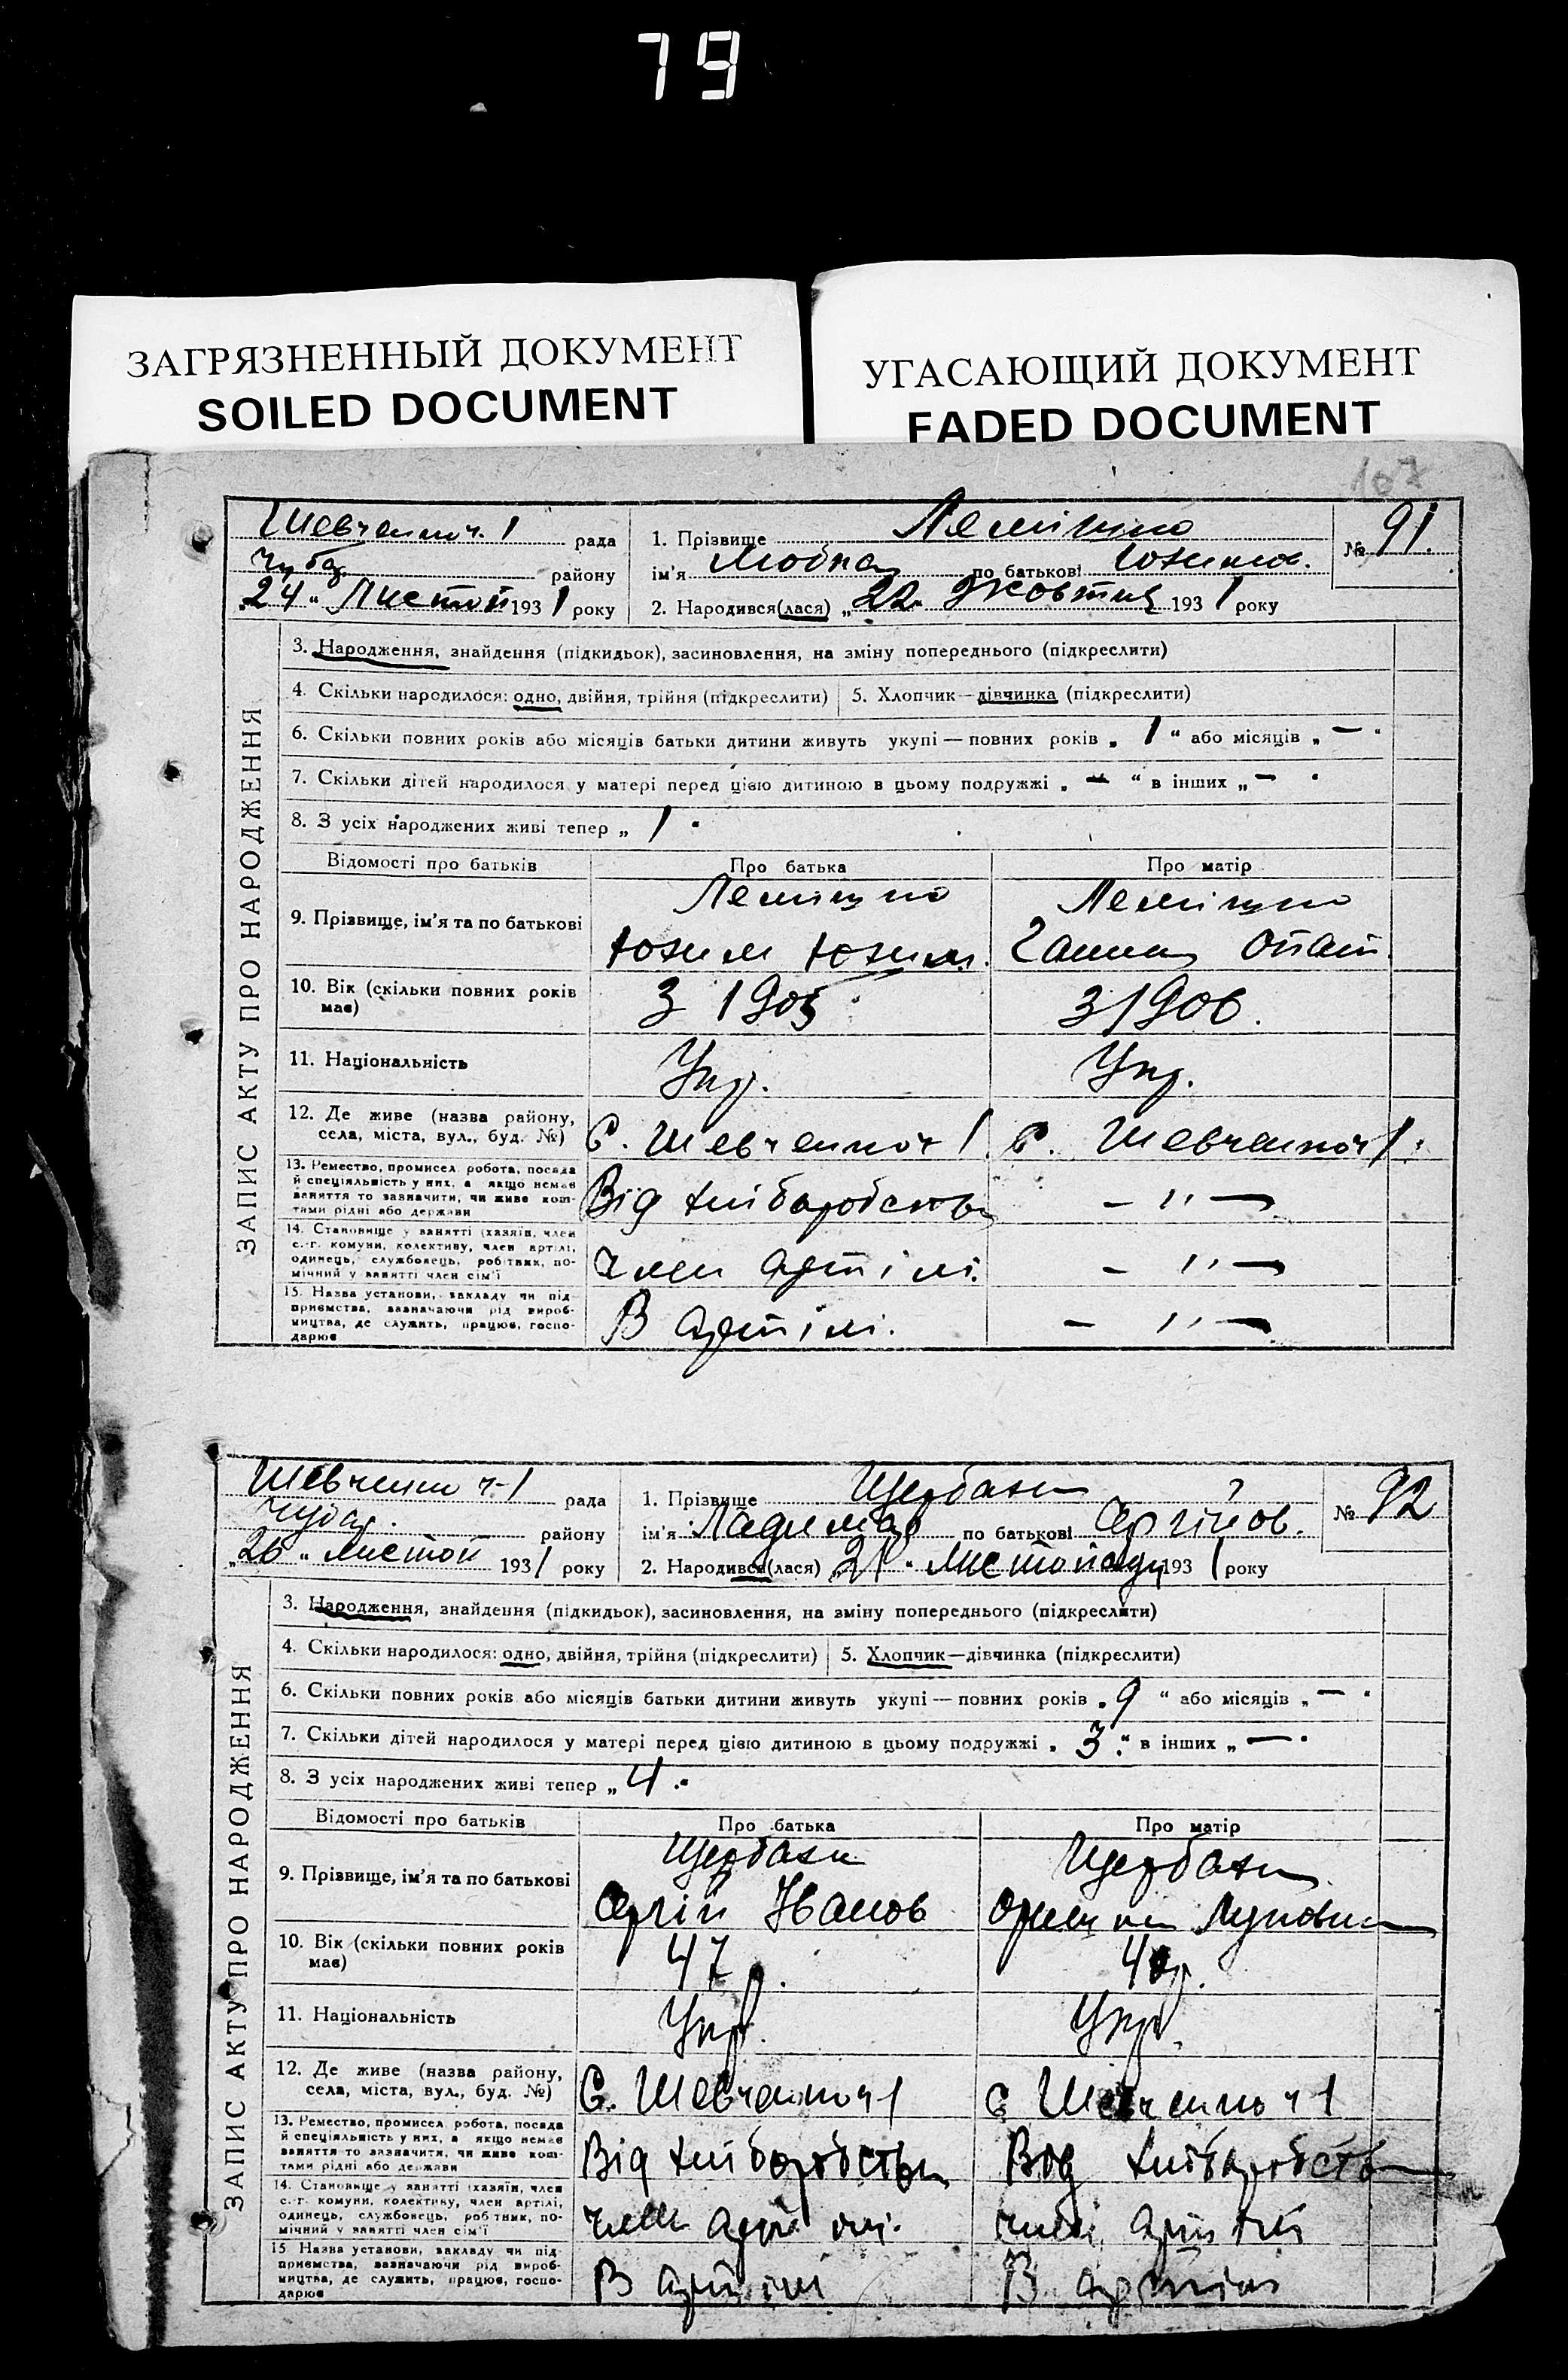 79
ЗАГРЯЗНЕННЫЙ ДОКУМЕНТ
SOILED DOCUMENT
УГАСАЮЩИЙ ДОКУМЕНТ
FADED DOCUMENT
107
Шевченко ч. 1 рада
Чубар. району
„24“ Листоп 1931 року
1. Прізвище Леміщко
ім'я Любка по батькові Юхимов.
2. Народився(лася) „22“ Жовтня 1931 року
№ 91.
ЗАПИС АКТУ ПРО НАРОДЖЕННЯ
3. Народження, знайдення (підкидьок), засиновлення, на зміну попереднього (підкреслити)
4. Скільки народилося: одно, двійня, трійня (підкреслити) 5. Хлопчик—дівчинка (підкреслити)
6. Скільки повних років або місяців батьки дитини живуть укупі — повних років „ 1 “ або місяців „ — “
7. Скільки дітей народилося у матері перед цією дитиною в цьому подружжі „ — “ в інших „ — “
8. З усіх народжених живі тепер „ 1 “
Відомості про батьків Про батька Про матір
9. Прізвище, ім'я та по батькові Леміщко Леміщко
Юхим Юхим. Ганна Опан.
10. Вік (скільки повних років має) З 1905 З 1906.
11. Національність Укр. Укр.
12. Де живе (назва району, села, міста, вул., буд. №) С. Шевченко ч 1 С. Шевченко ч 1
13. Ремество, промисел, робота, посада й спеціяльність у них, а якщо немає заняття то зазначити, чи живе коштами рідні або держави Від хліборобства — " —
14. Становище у занятті (хазяїн, член с.-г. комуни, колективу, член артілі, одинець, службовець, робітник, помічний у занятті член сім'ї Член артілі. — " —
15. Назва установи, закладу чи підприємства, зазначаючи рід виробництва, де служить, працює, господарює В артілі. — " —
Шевченко ч-1 рада
Чубар. району
„26“ Листоп 1931 року
1. Прізвище Щербаки
ім'я по батькові Сергійов.
2. Народився(лася) „21“ Листопада 1931 року
№ 92
ЗАПИС АКТУ ПРО НАРОДЖЕННЯ
3. Народження, знайдення (підкидьок), засиновлення, на зміну попереднього (підкреслити)
4. Скільки народилося: одно, двійня, трійня (підкреслити) 5. Хлопчик—дівчинка (підкреслити)
6. Скільки повних років або місяців батьки дитини живуть укупі — повних років „ 9 “ або місяців „ — “
7. Скільки дітей народилося у матері перед цією дитиною в цьому подружжі „ 3 “ в інших „ — “
8. З усіх народжених живі тепер „ 4 “
Відомості про батьків Про батька Про матір
9. Прізвище, ім'я та по батькові Щербаки Щербаки
Сергій Іванов
10. Вік (скільки повних років має) 47 р.
11. Національність Укр. Укр.
12. Де живе (назва району, села, міста, вул., буд. №) С. Шевченко ч 1 С Шевченко ч 1
13. Ремество, промисел, робота, посада й спеціяльність у них, а якщо немає заняття то зазначити, чи живе коштами рідні або держави Від хліборобства Від хліборобства
14. Становище у занятті (хазяїн, член с.-г. комуни, колективу, член артілі, одинець, службовець, робітник, помічний у занятті член сім'ї Член артілі. Член артілі
15. Назва установи, закладу чи підприємства, зазначаючи рід виробництва, де служить, працює, господарює В артілі В артілі